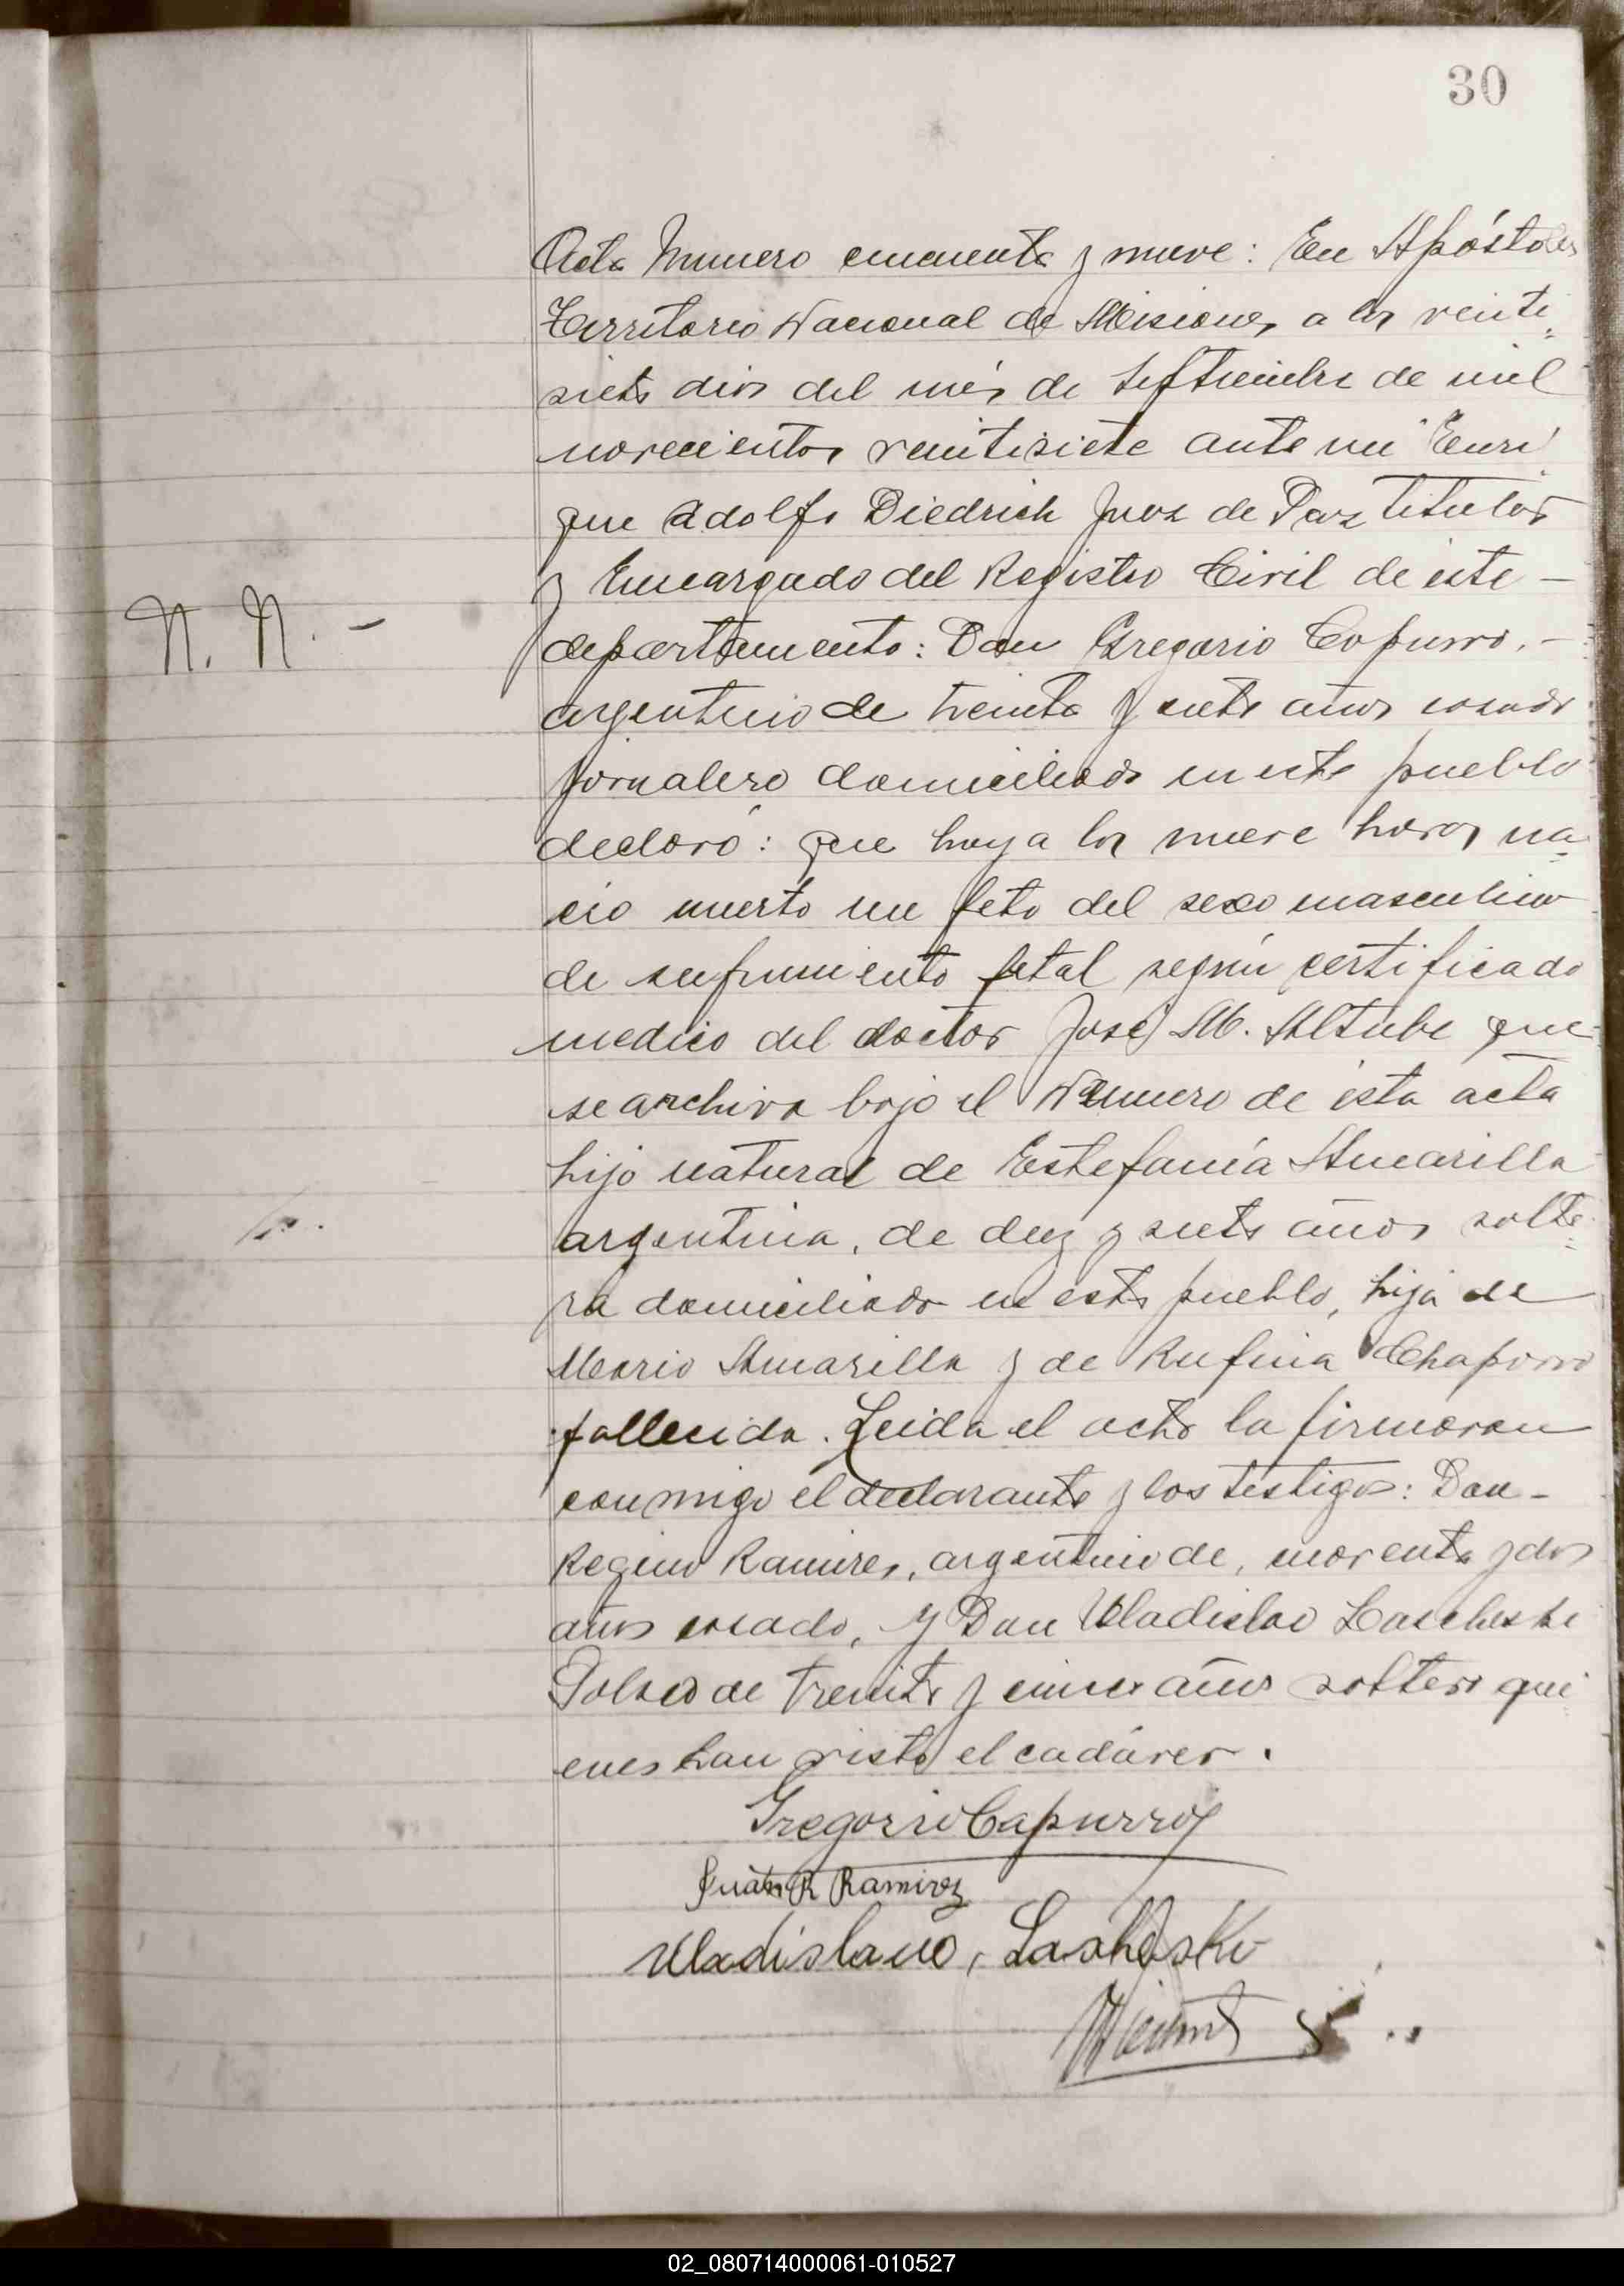 30
Acta Numero cincuenta y nueve: En Apóstoles
Territorio Nacional de Misiones, a los veinti-
siete dias del més de Septiembre de mil
novecientos veintisiete ante mi Enri
que Adolfo Diedrich Juez de Paz titular
y Encargado del Registro Civil de éste -
N. N. -
departamento: Don Gregorio Capurro. -
argentino de treinta y siete años casado
jornalero domiciliado en este pueblo
declaró: que hoy a las nueve horas na-
cio muerto un feto del sexo masculino
de sufrimiento fetal según certificado
medico del doctor José M. Altube que
se archiva bajo el Numero de ésta acta
hijo natural de Estefanía Amarilla
argentina, de diez y siete años solte-
ra domiciliada en este pueblo, hija de
Mario Amarilla y de Rufina Chaparro
fallecida. Leida el acta la firmaron
conmigo el declarante y los testigos: Don -
Regino Ramires, argentino de, y dos
años casado, y Don Uladislao Lascheski
Polaco de treinta y cinco años soltero qui-
enes han visto el cadáver.
Gregorio Capurro
Juan R Ramirez
Uladislauo, Lasheski